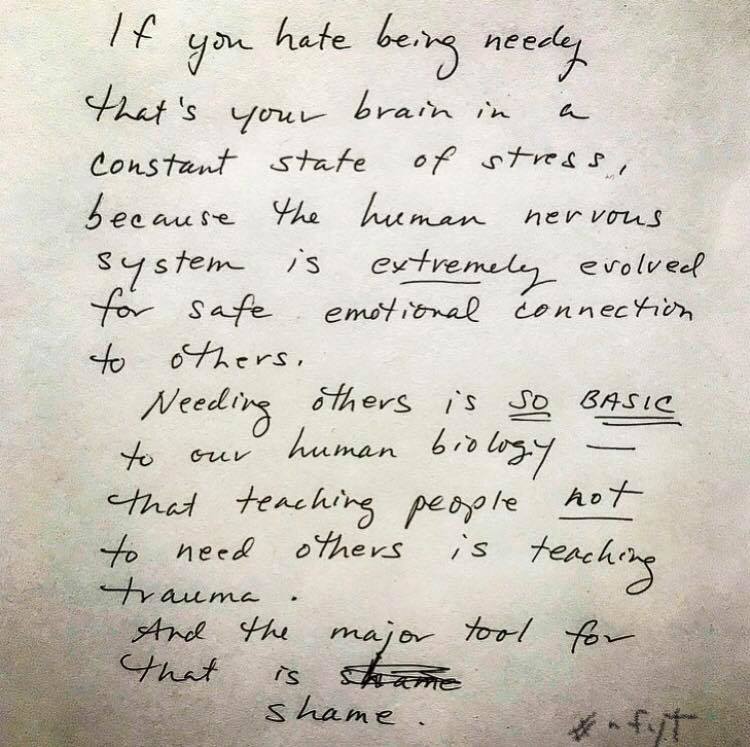 If you hate being needy
that's your brain in a
constant state of stress,
because the human nervous
system is extremely evolved
for safe emotional connection
to others.
Needing others is SO BASIC
to our human biology —
that teaching people not
to need others is teaching
trauma.
And the major tool for
that is shame
shame.
#nfyt